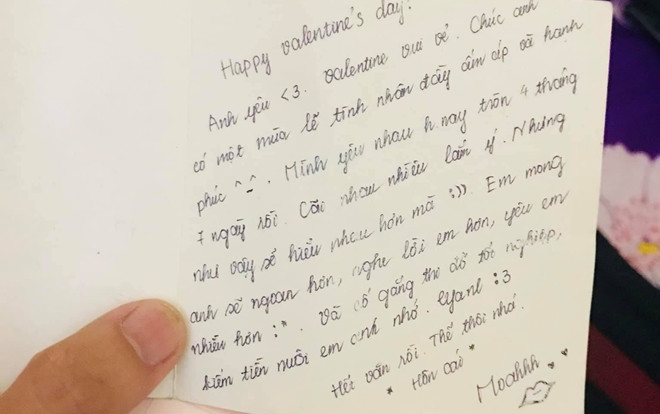 Happy valentine's day!
Anh yêu <3. Valentine vui vẻ. Chúc anh
có một mùa lễ tình nhân đầy ấm áp và hạnh
phúc ^_^. Mình yêu nhau h.nay tròn 4 tháng
7 ngày rồi. Cãi nhau nhiều lắm ý. Nhưng
như vậy sẽ hiểu nhau hơn mà :)). Em mong
anh sẽ ngoan hơn, nghe lời em hơn, yêu em
nhiều hơn :"). Và cố gắng thi đỗ tốt nghiệp,
kiếm tiền nuôi em anh nhớ. :3
Hết văn rồi. Thế thôi nhá.
* Hôn cái *
Moahhh